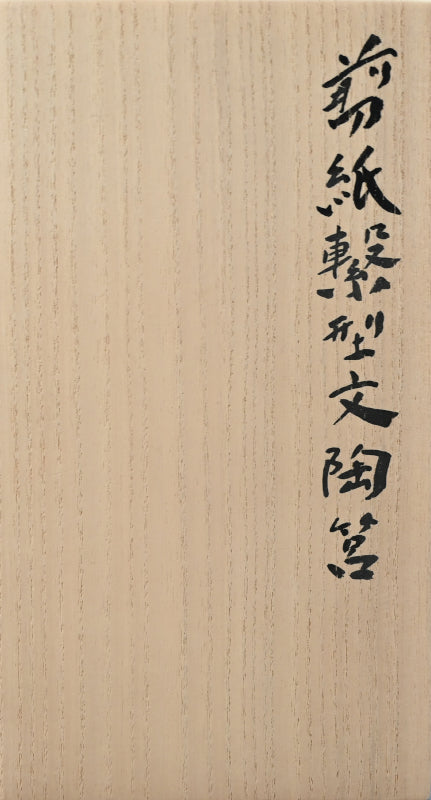 剪紙繋型文陶筥